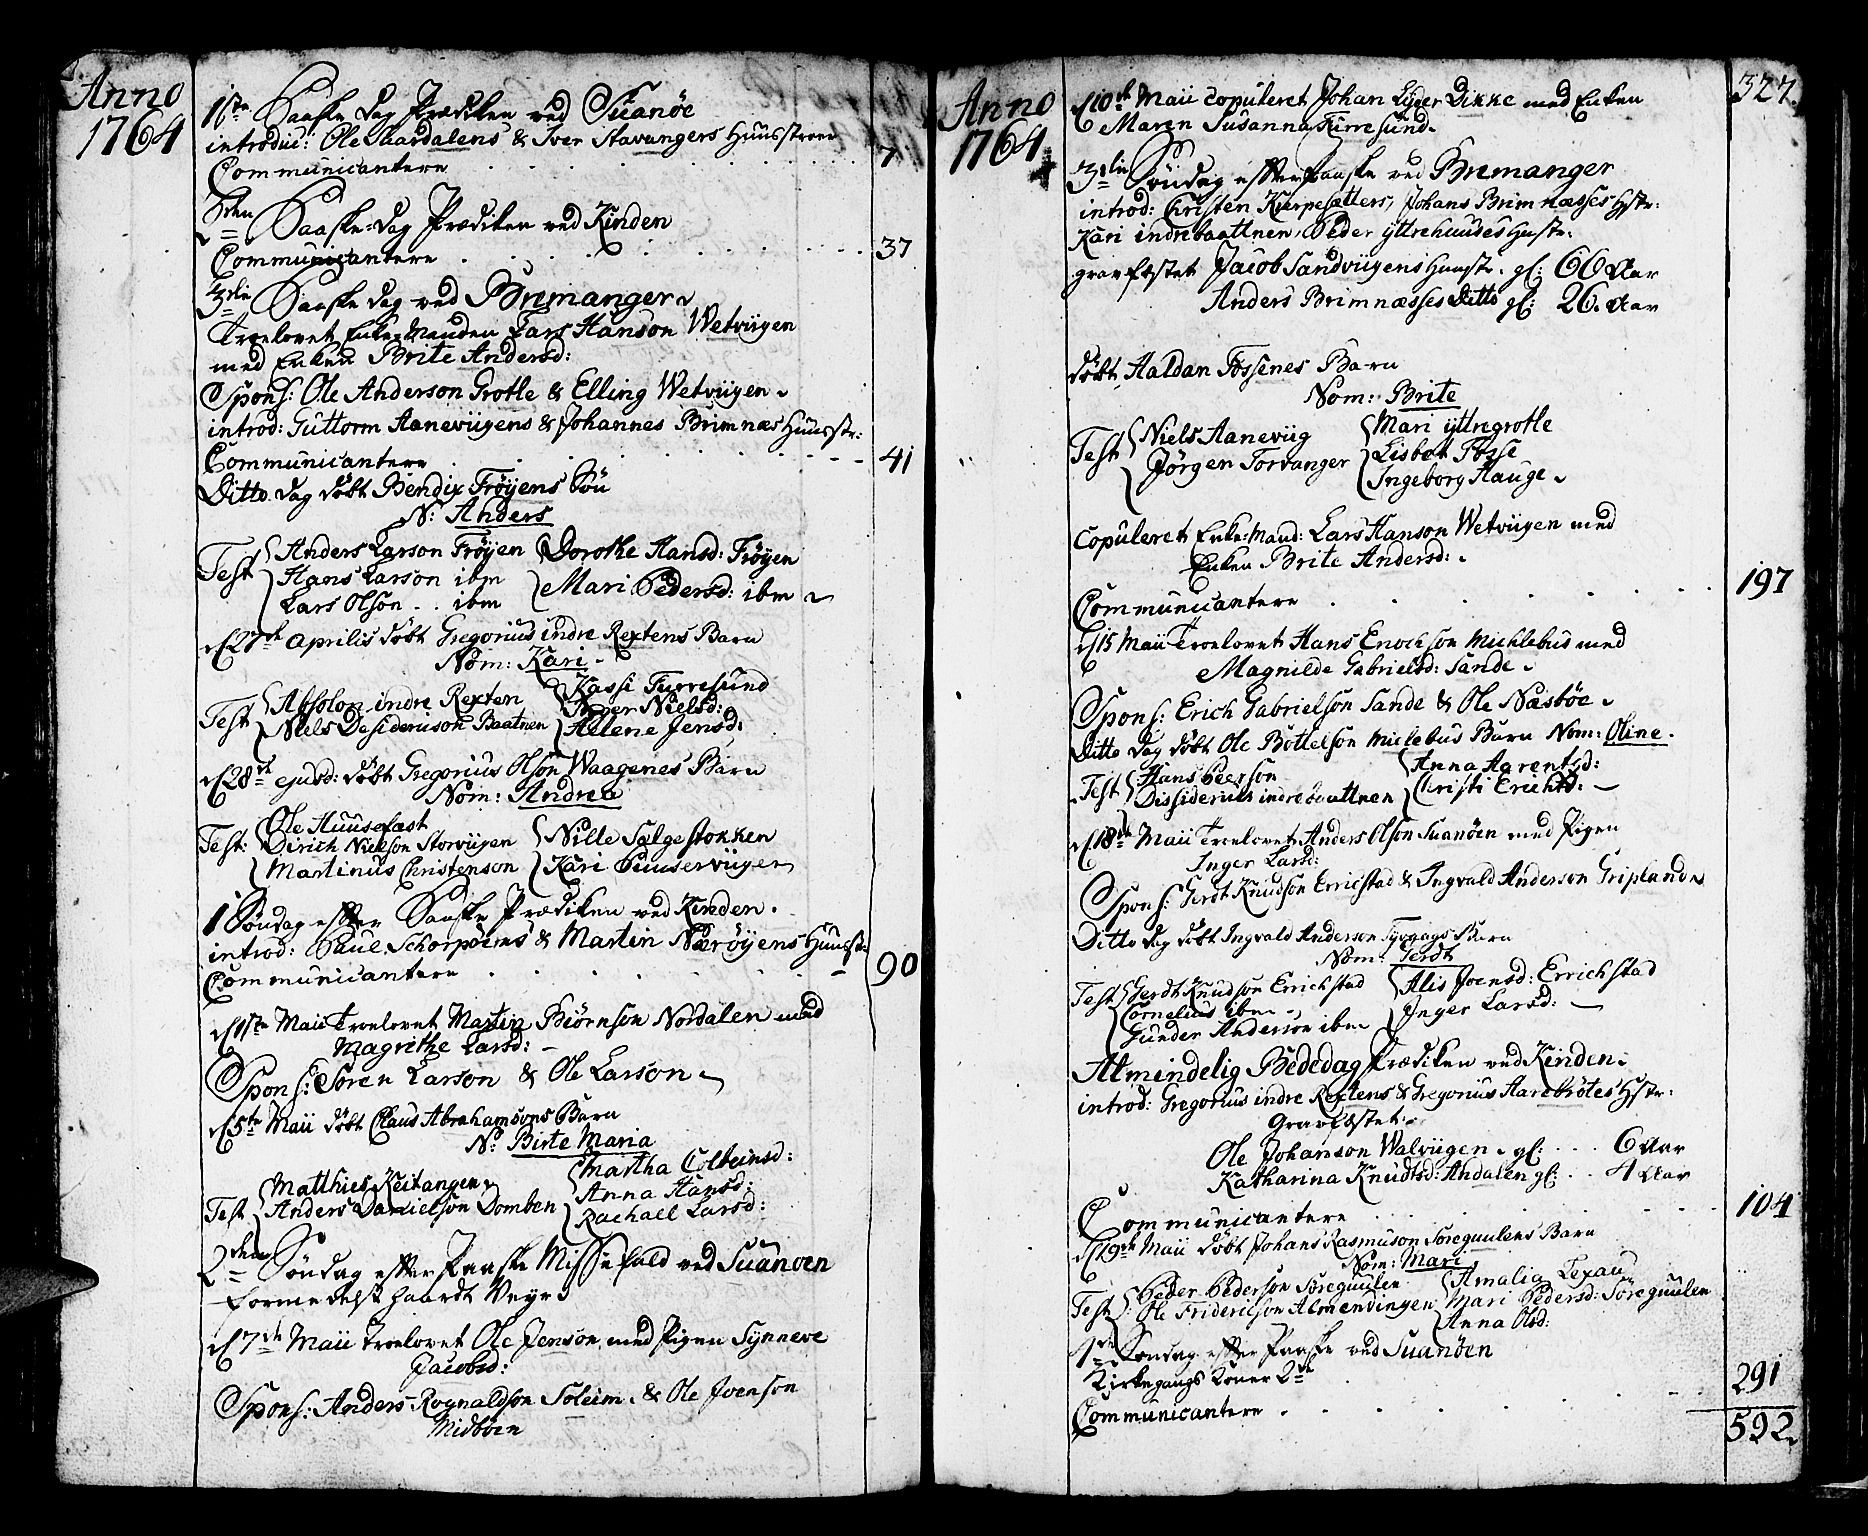 Anno
1764
1ste Paaske Dag Prædiken ved Suanöe
introduc: Ole Aardalens & Iver Stavangers Huusstroer
Communicantere 7
2den Paaske-Dag Prædiken ved Kinden
Communicantere 37
3die Paaske Dag ved Bremanger
Troelovet Enke-Manden Lars Hanson Wetviigen
med Enken Brite Andersd:
Spons: Ole Anderson Grotle & Elling Wetviigen
introd: Guttorm Aaneviigens & Johannes Brimnæs Huusstr:
Communicantere 41
Ditto Dag döbt Bendix Fröyens Sön
N: Anders
Test Anders Larson Fröyen Dorothe Hansd: Fröyen
Hans Larson ibm Mari Pedersd: ibm
Lars Olson ibm
d 27de Aprilis döbt Gregorius indre Rextens Barn
Nom: Kari
Test Absolon indre Rexten Kassi Furresund
Niels Desiderius on Baatnen Inger Nielsd:
Helene Jensd:
d 28de ejusd: döbt Gregorius Olson Waagenes Barn
Nom: Andrea
Test: Ole Huusefæst Nille Sælgestokken
Dirich Nielson Storviigen
Martinus Christenson Kari
1 Söndag efter Paaske Prædiken ved Kinden
introd: Paul Schorpöens & Martin Næröyens Huusstr:
Communicantere 90
d 1ste Maii Troelovet Martin Biörnson Nordalen med
Magrithe Larsd:
Spons: Sören Larson & Ole Larson
d 5te Maii döbt Claus Abrahamsons Barn
N: Birte Maria
Test Matthies Keitangen Martha Colbeinsd:
Anders Danielson Domben Anna Hansd:
Rachael Larsd:
2den Söndag efter Paaske Misse fald ved Suanöen
formedelst haardt Veyr
d 7de Maii Troelovet Ole Jenson med Pigen Synneve
Jacobsd:
Spons: Anders Rognaldson Soleim & Ole Joenson
Midböen
Anno
1764
327.
d 10de Maii copuleret Johan Lyder Dikke med Enken
Maren Susanna Furresund
3die Söndag efter Paaske ved Bremanger
introd: Christen Kierpesætters, Johans Brimnæsses Hstr:
Kari indrebaattnen, Peder yttrehuudes Hustr:
gravfæstet Jacob Sandviigens Huustr. gl: 60 Aar
Anders Brimnæsses Ditto gl: 26. Aar
döbt Haldan Fossenes Barn
Nom: Brite
Test Niels Aaneviig Mari yttregrotle
Jörgen Torvanger Lisbet Fosse
Ingeborg Hauge
Copuleret Enke-Mand: Lars Hanson Wetviigen med
Enken Brite Andersd:
Communicantere 197
d 15 Maii Troelovet Hans Enochson Michlebus med
Magnilde Gabrielsd: Sande
Spons: Erich Gabrielson Sande & Ole Næsböe
Ditto Dag döbt Ole Bottelson Miclebus Barn Nom: Oline.
Test Hans Peerson Anna Aarentsd:
Dissiderius indrebaattnen Christi Erichsd:
d 18de Maii Troelovet Anders Olson Suanöen med Pigen
Inger Larsd:
Spons: Gerdt Knudson Errichstad & Ingvald Anderson Gripland
Ditto Dag döbt Ingvald Anderson Barn
Nom: Gerdt
Test Gerdt Knudson Errichstad Alis Joensd: Errichstad
Cornelius ibm Inger Larsd:
Gunder Anderson ibm
Almindelig Bededag Prædiken ved Kinden
introd: Gregorius indre Rextens & Gregorius Aarebrötes Hstr:
Gravfæstet
Ole Johanson Walviigen gl: 6 Aar
Katharina Knudtsd: Andalen gl: 4 Aar
Communicantere 104
d 19de Maii döbt Johans Rasmuson Söreguulens Barn
Nom: Mari
Test: Peder Pederson Söreguulen Amalia Lexau
Ole Friderichson Almendingen Mari Pedersd: Söreguulen
Anna Olsd:
Söndag efter Paaske ved Suanöen
Kirkegangs Koner 2de
Communicantere 291
592